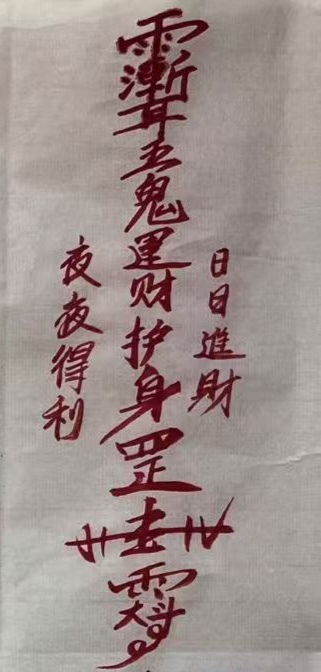 日日進財
雨漸耳五鬼運财护身罡
夜夜得利